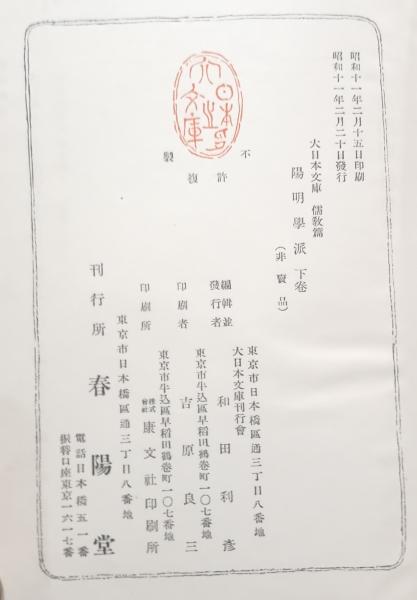 昭和十一年二月十五日印刷
昭和十一年二月二十日發行
大日本文庫 儒敎篇
陽明學派 下卷
(非賣品)
不許複製
大日本文庫之印
東京市日本橋區通三丁目八番地
大日本文庫刊行會
編輯並發行者 和田利彥
東京市牛込區早稻田鶴卷町一〇七番地
印刷者 吉原良三
東京市牛込區早稻田鶴卷町一〇七番地
印刷所 株式會社 康文社印刷所
東京市日本橋區通三丁目八番地
刊行所 春陽堂
電話日本橋五一番
振替口座東京一六一七番